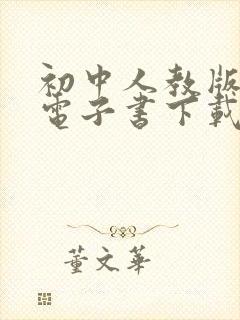 初中人教版
電子書下載
董文華